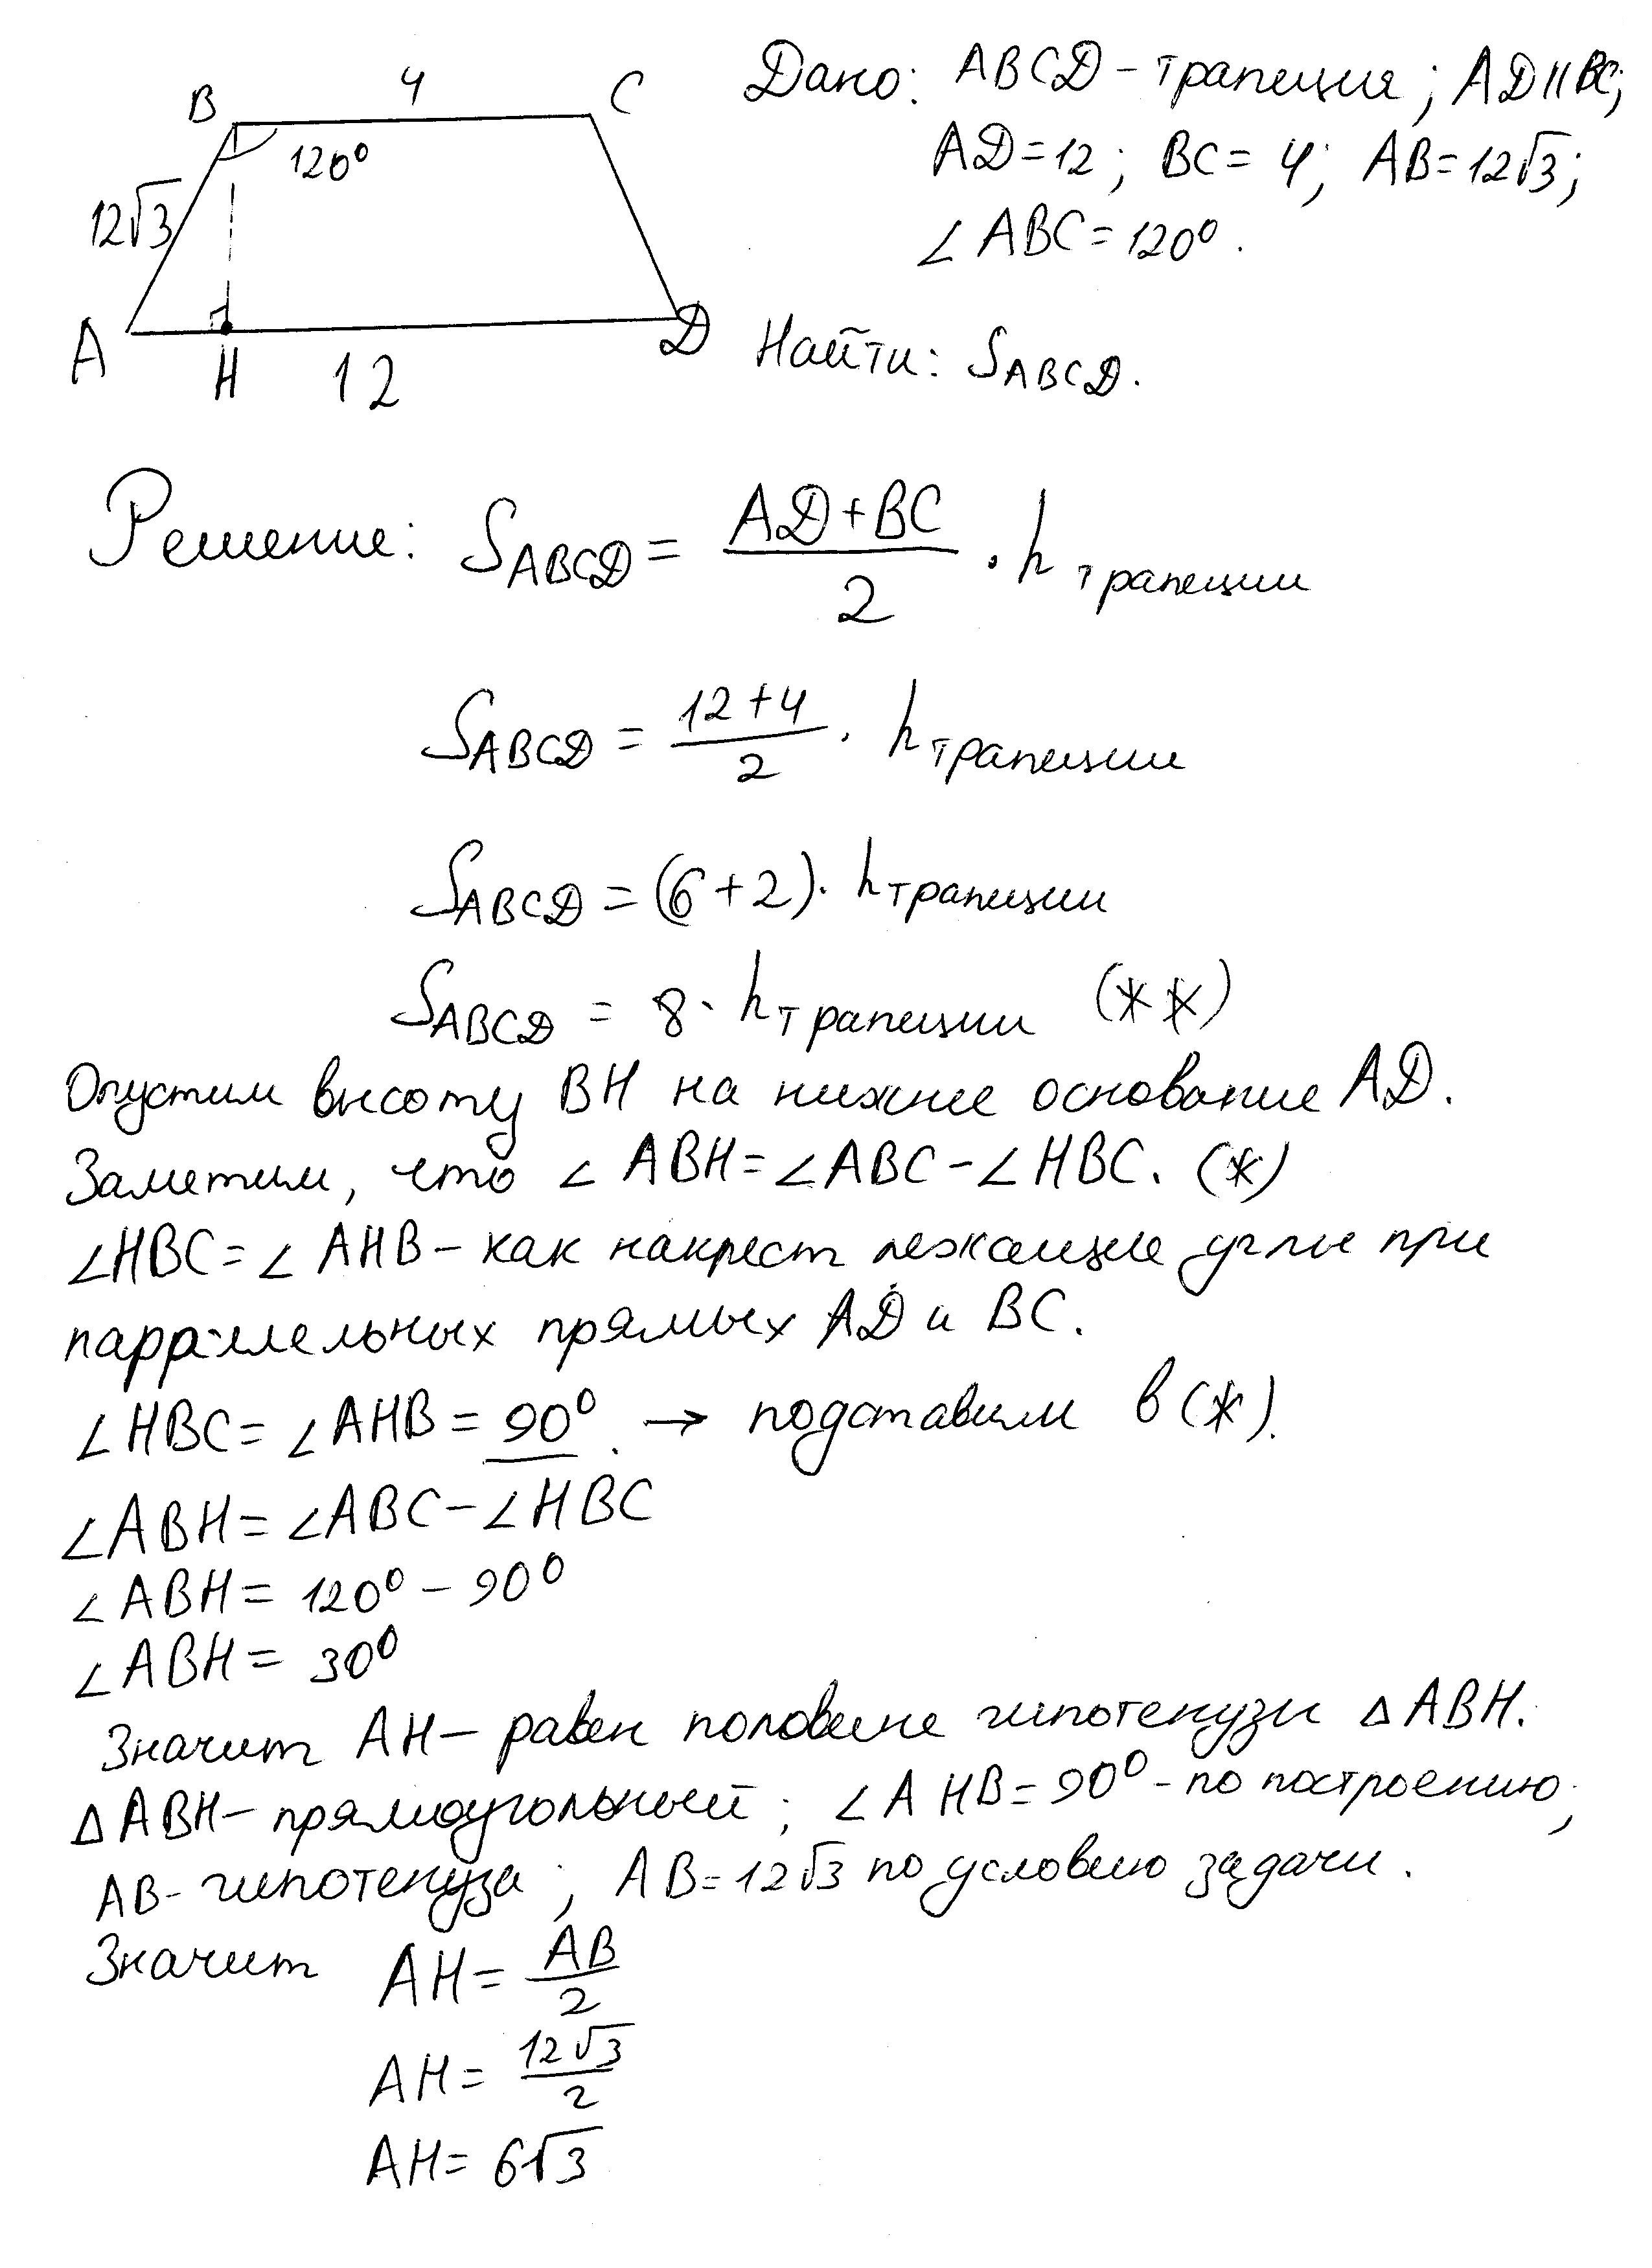 B 4 C
120°
12√3
A H 12 D
Дано: ABCD - трапеция; AD || BC;
AD = 12; BC = 4; AB = 12√3;
∠ABC = 120°.
Найти: S_ABCD.
Решение: S_ABCD = (AD + BC)/2 · h трапеции
S_ABCD = (12 + 4)/2 · h трапеции
S_ABCD = (6 + 2) · h трапеции
S_ABCD = 8 · h трапеции (**)
Опустим высоту BH на нижнее основание AD.
Заметим, что ∠ABH = ∠ABC - ∠HBC. (*)
∠HBC = ∠AHB - как накрест лежащие углы при
парралельных прямых AD и BC.
∠HBC = ∠AHB = 90°. → подставим в (*).
∠ABH = ∠ABC - ∠HBC
∠ABH = 120° - 90°
∠ABH = 30°
Значит AH - равен половине гипотенузы △ABH.
△ABH - прямоугольный; ∠AHB = 90° - по построению;
AB - гипотенуза; AB = 12√3 по условию задачи.
Значит AH = AB/2
AH = 12√3/2
AH = 6√3